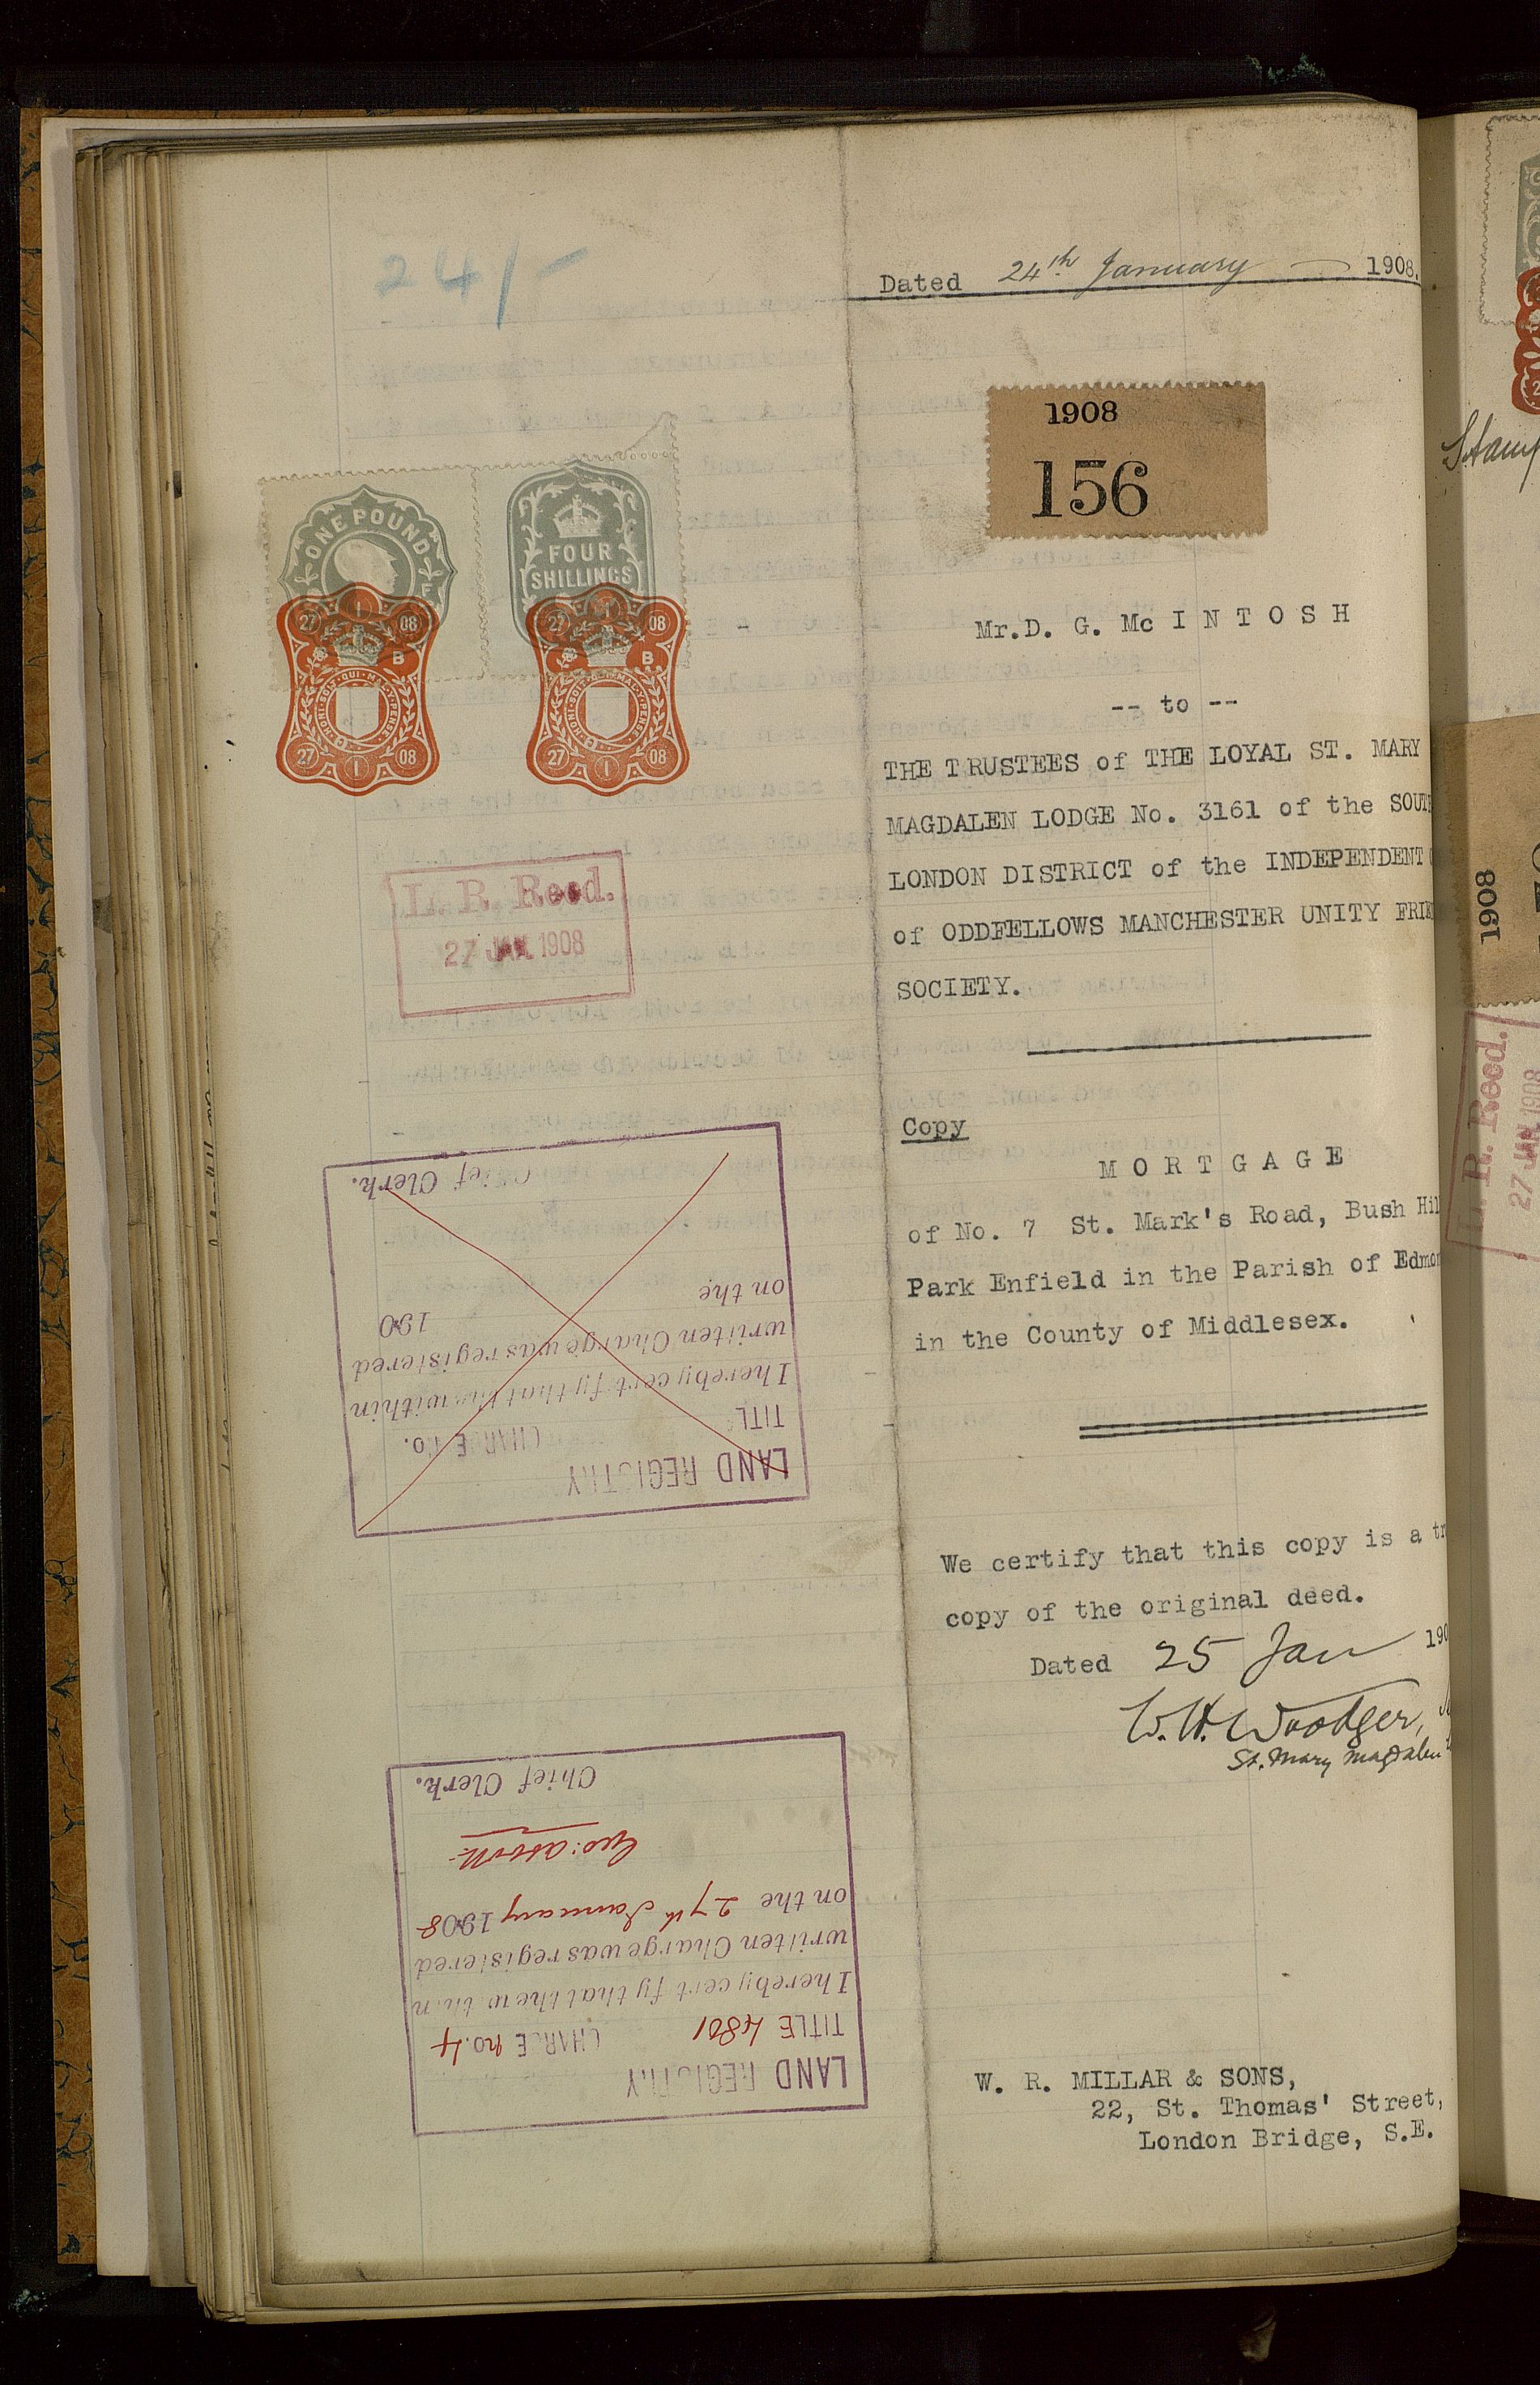 24/-
Dated 24th January 1908.
1908
156
ONE POUND
FOUR
SHILLINGS
27 1 08
B
HONI · SOIT · QUI · MAL · Y · PENSE
27 1 08
27 1 08
B
HONI · SOIT · QUI · MAL · Y · PENSE
27 1 08
Mr.D. G. Mc I N T O S H
-- to --
THE TRUSTEES of THE LOYAL ST. MARY
MAGDALEN LODGE No. 3161 of the SOUTH
LONDON DISTRICT of the INDEPENDENT
of ODDFELLOWS MANCHESTER UNITY FRIE
SOCIETY.
L. R. Recd.
27 JAN. 1908
Copy
M O R T G A G E
of No. 7 St. Mark's Road, Bush Hil
Park Enfield in the Parish of Edmon
in the County of Middlesex.
LAND REGISTRY
TITL CHARGE No.
I hereby certify that the within
written Charge was registered
on the 190
Chief Clerk.
We certify that this copy is a tr
copy of the original deed.
Dated 25 Jan 190
W. H. Woodger,
St. Mary Magdalen
LAND REGISTRY
TITLE 4801 CHARGE no. 4
I hereby certify that the within
written Charge was registered
on the 27th January 1908
Chief Clerk.
W. R. MILLAR & SONS,
22, St. Thomas' Street,
London Bridge, S.E.
Stamp
1908
L. R. Recd.
27 JAN. 1908